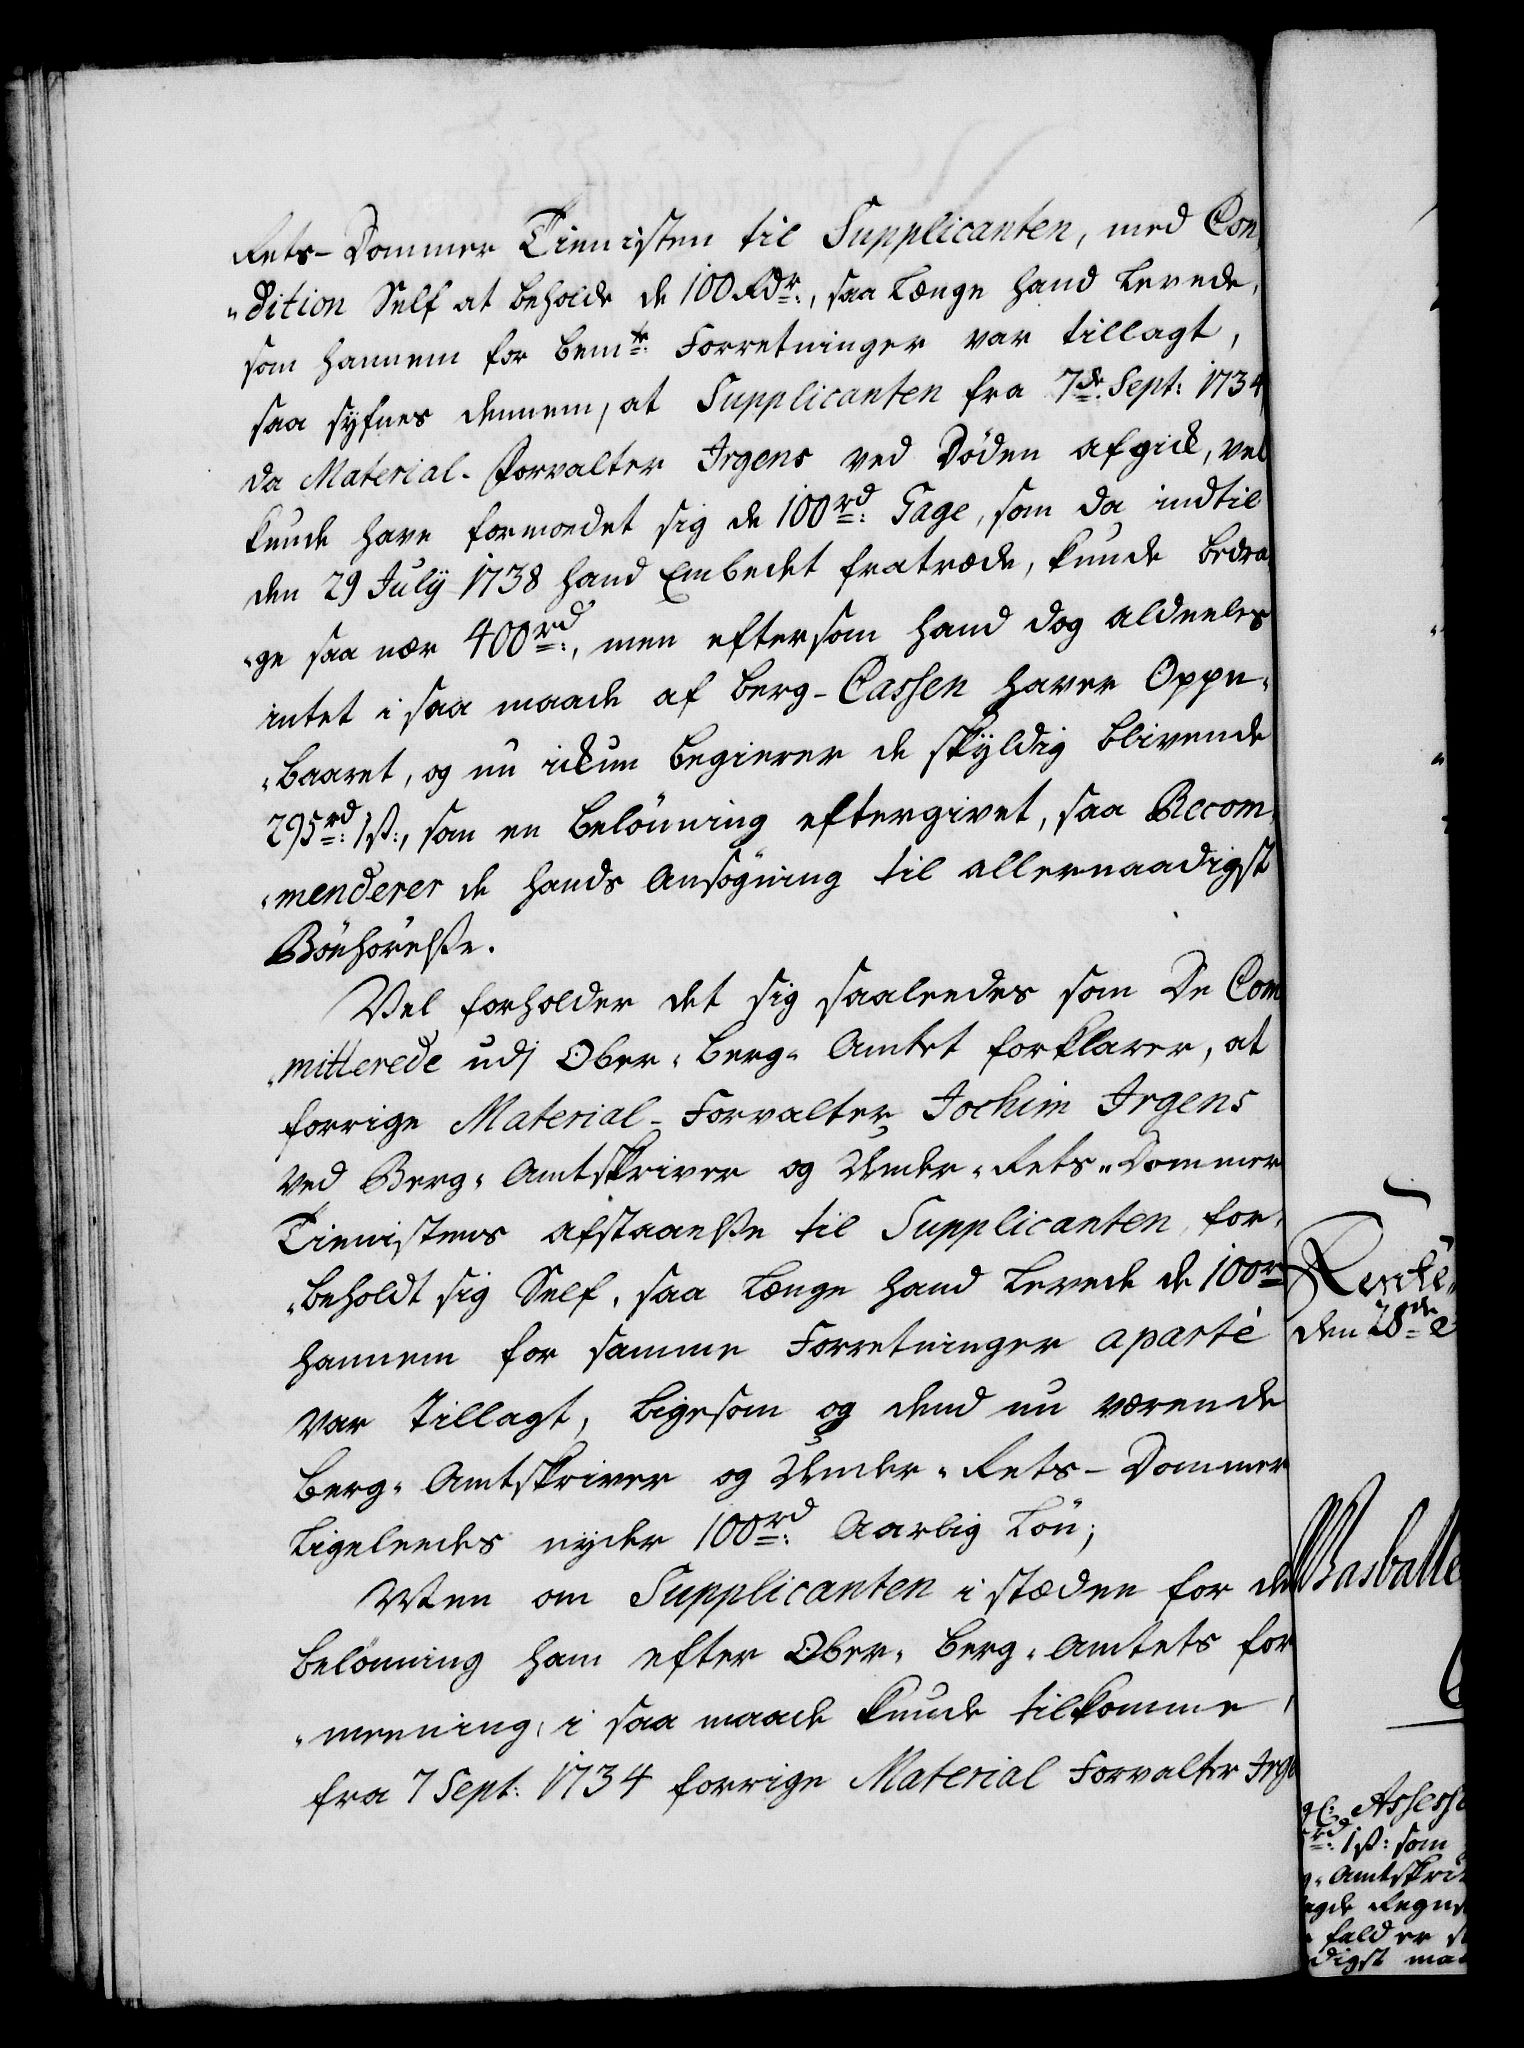 Rets-Dommer Tienisten til Supplicanten, med Con,
"dition Self at beholde de 100 Rdr:, saa Længe hand Levede,
som hannem for bemte: Forretninger var tillagt,
saa syfnes dennem, at Supplicanten fra 7de: Sept: 1734
da Material-Forvalter Irgens ved Döden afgick, vel
kunde have formodet sig de 100rd: Gage, som da indtil
den 29 Julÿ 1738 hand Embedet fratræde, kunde bedra
"ge saa nær 400rd:, men eftersom hand dog aldeeles
intet i saa maade af Berg-Cassen haver Oppe,
"baaret, og nu ickun begierer de skÿldig blivende
295rd: 1ß:, som en belönning eftergivet, saa Recom,
"menderer de hands Ansögning til allernaadigst
Bönhörelße.
Vel forholder det sig saaleedes som De Com
"mitterede udj Ober-Berg-Amtet forklarer, at
forrige Material-Forvalter Jochim Irgens
ved Berg-Amtskriver og Under-Rets-Dommer
Tienistens afstaaelße til Supplicanten for,
"beholdt sig Self, saa Længe hand Levede de 100r
hannem for samme Forretninger aparté
var tillagt, ligesom og dend nu værende
Berg-Amtskriver og Under-Rets-Dommer
Ligeleedes nyder 100rd: Aarlig Lön;
Men om Supplicanten i stæden for de
belönning ham efter Ober-Berg-Amtets for
"meening, i saa maade kunde tilkomme,
fra 7 Sept: 1734 forrige Material Forvalter Irge
den 28de
Assess
rd: 1ß: som
Amtskri
fald er
digst ma